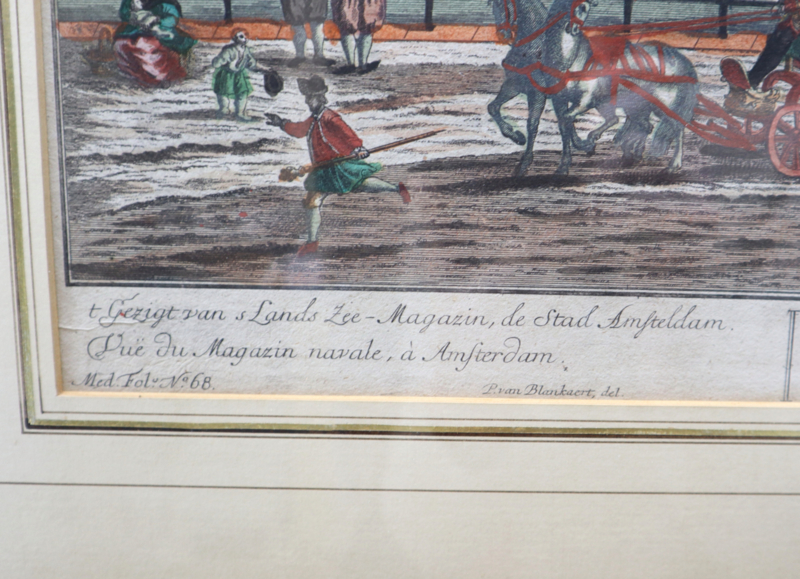 t Gezigt van s Lands Zee-Magazin, de Stad Amſteldam.
Vuë du Magazin navale, à Amſterdam.
Med. Folº Nº 68.
P. van Blankaert, del.